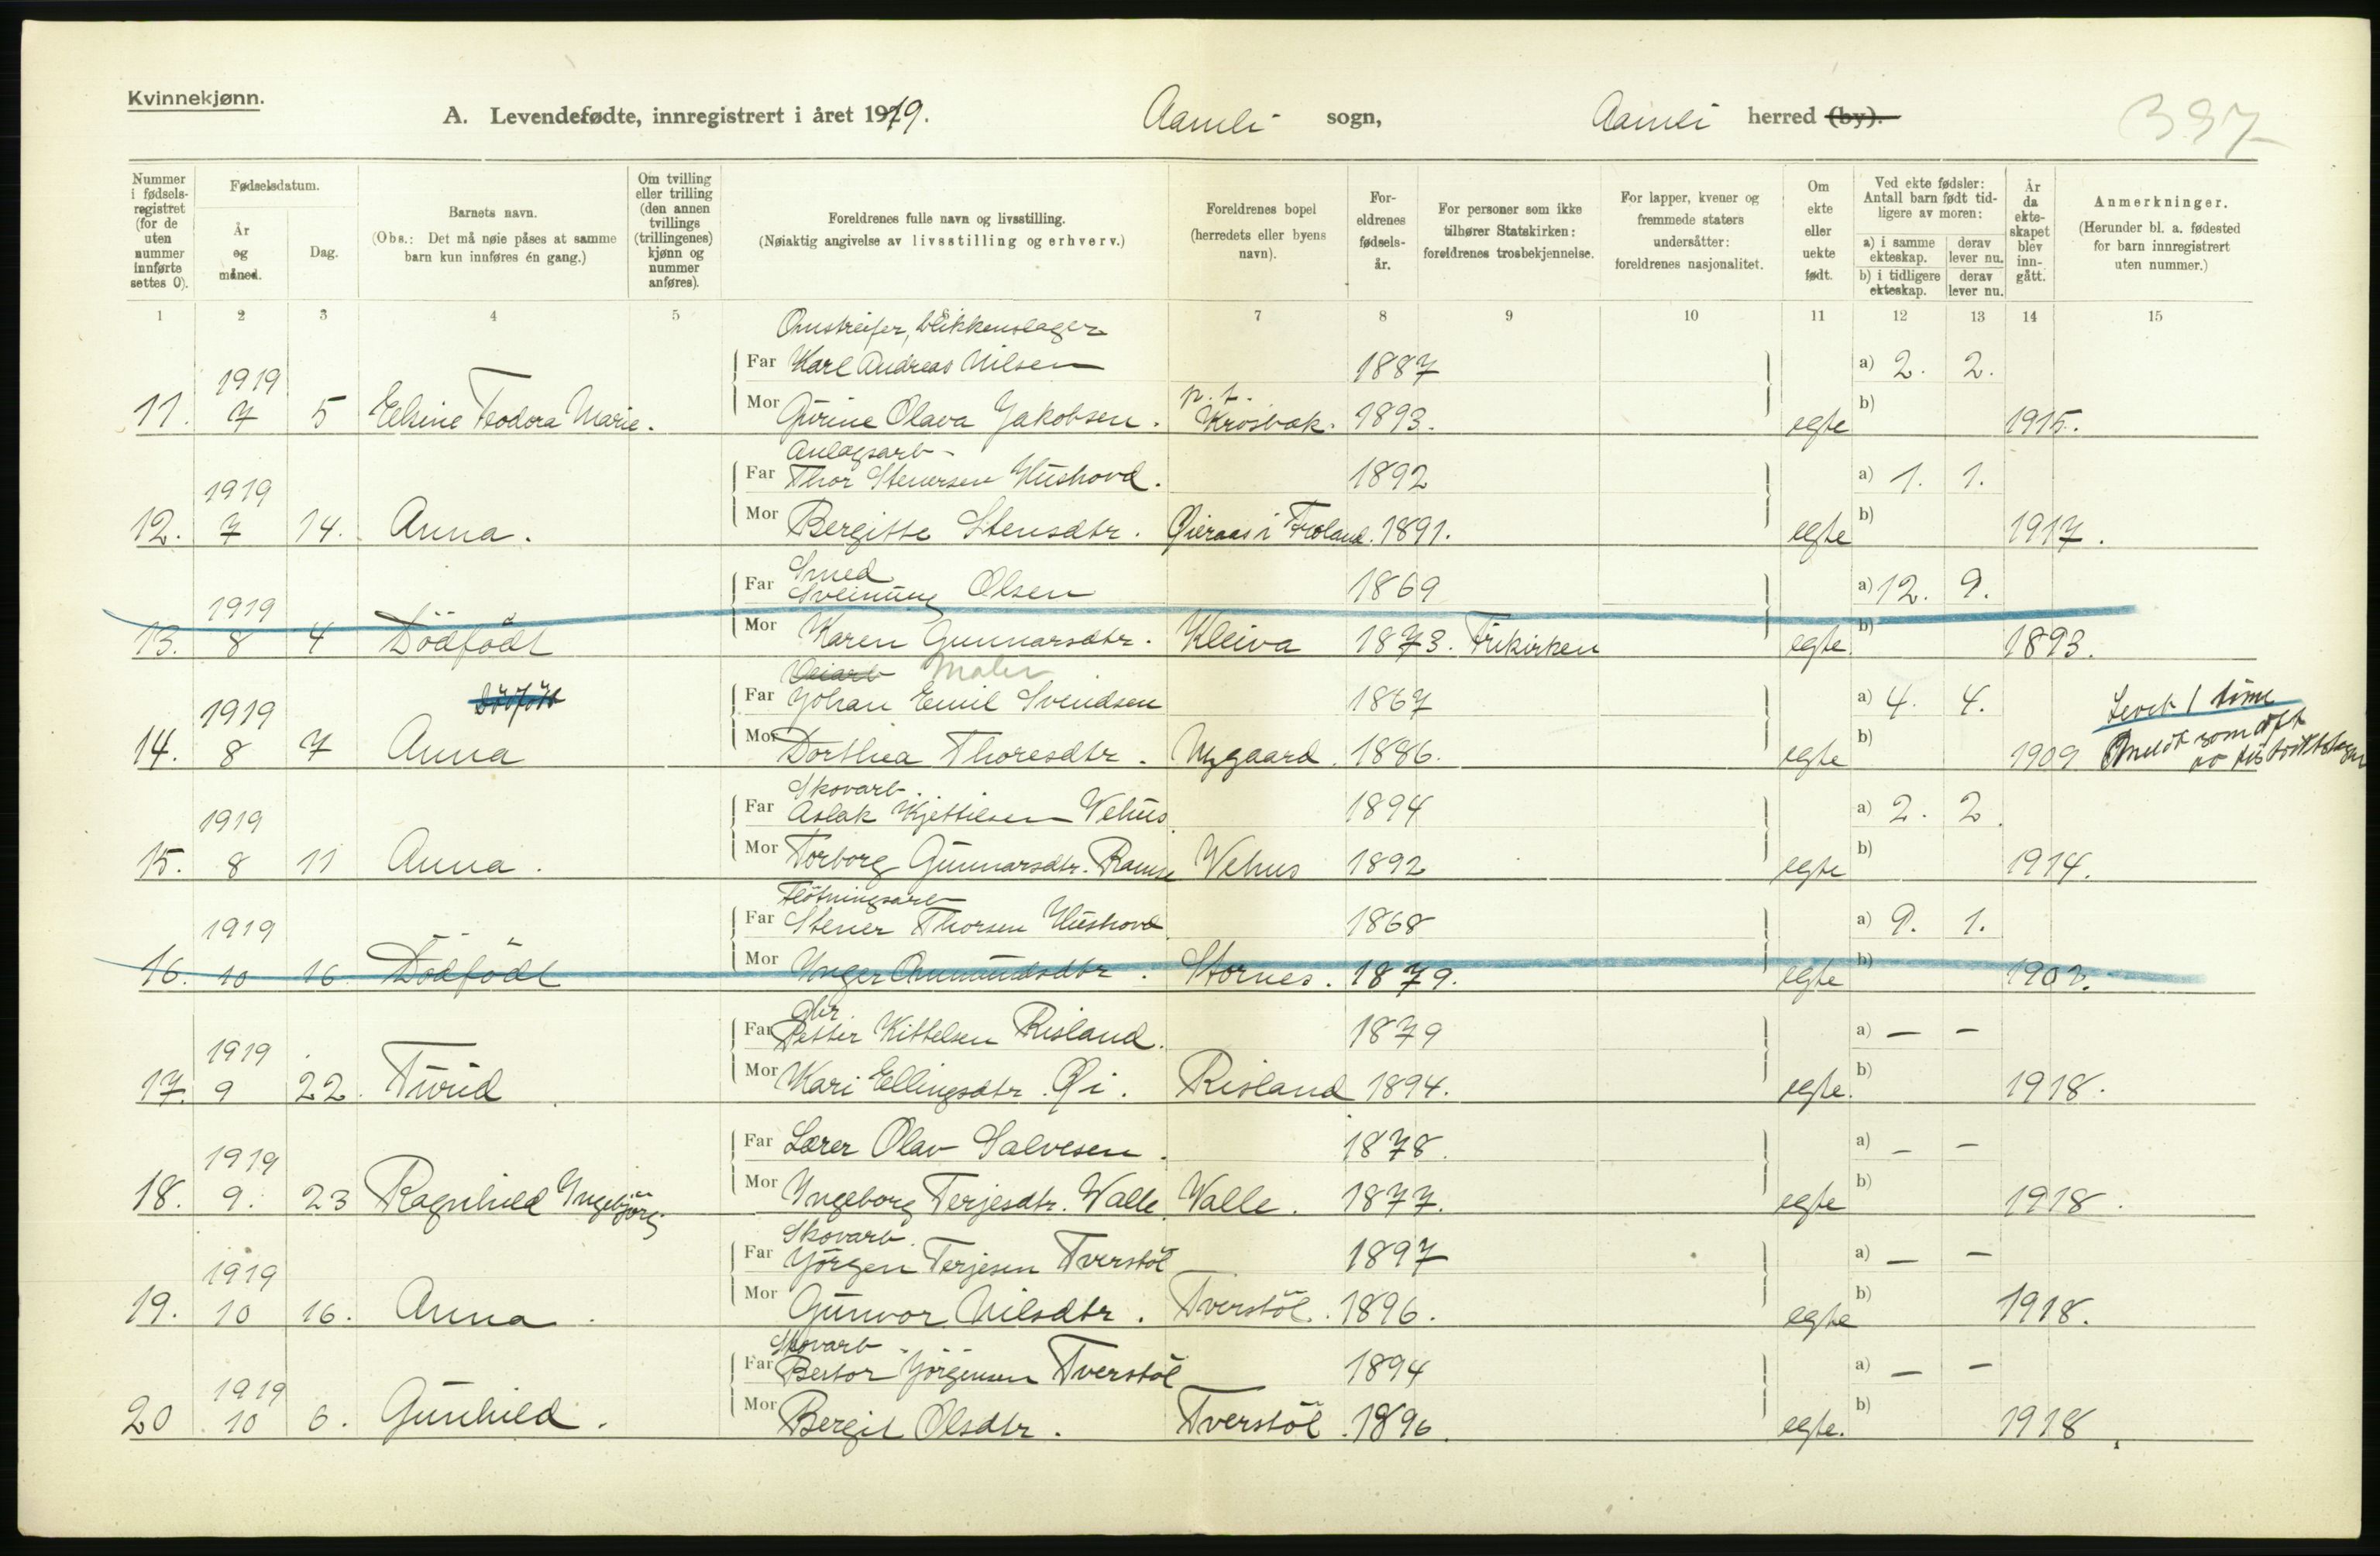 Kvinnekjønn.
A. Levendefødte, innregistrert i året 1919. Aamli sogn, Aamli herred (by). 397
Nummer i fødselsregistret (for de uten nummer innførte settes 0).
Fødselsdatum.
År og måned.
Dag.
Barnets navn.
(Obs.: Det må nøie påses at samme barn kun innføres én gang.)
Om tvilling eller trilling (den annen tvillings (trillingenes) kjønn og nummer anføres).
Foreldrenes fulle navn og livsstilling.
(Nøiaktig angivelse av livsstilling og erhverv.)
Foreldrenes bopel (herredets eller byens navn).
Foreldrenes fødselsår.
For personer som ikke tilhører Statskirken: foreldrenes trosbekjennelse.
For lapper, kvener og fremmede staters undersåtter: foreldrenes nasjonalitet.
Om ekte eller uekte født.
Ved ekte fødsler: Antall barn født tidligere av moren:
a) i samme ekteskap. derav lever nu.
b) i tidligere ekteskap. derav lever nu.
År da ekteskapet blev inngått.
Anmerkninger.
(Herunder bl. a. fødested for barn innregistrert uten nummer.)
1 2 3 4 5 7 8 9 10 11 12 13 14 15
Omstreifer, blikkenslager
Far Karl Andreas Nilsen 1887 a) 2. 2.
11. 1919 7 5 Elsine Teodora Marie. Mor Gurine Olava Jakobsen. p.t. Krosbak. 1893. egte b) 1915.
Anlagsarb.
Far Thor Stenersen Hushovd. 1892 a) 1. 1.
12. 1919 7 14. Anna. Mor Bergitte Stensdtr. Øieraas i Froland. 1891. egte b) 1917.
Smed
Far Sveinung Olsen 1869 a) 12. 9.
13. 1919 8 4 Dödfödt Mor Karen Gunnarsdtr. Kleiva 1873. Frikirken egte b) 1893.
Veiarb Maler
Far Johan Emil Svendsen 1867 a) 4. 4. Levet 1 time
14. 1919 8 7 Dödfödt Anna Mor Dorthea Thoresdtr. Nygaard. 1886. egte b) 1909
Skovarb.
Far Aslak Kjettilsen Vehus 1894 a) 2. 2.
15. 1919 8 11 Anna. Mor Torborg Gunnarsdtr. Ramse Vehus 1892 egte b) 1914.
Flötningsarb
Far Stener Thorsen Hushovd 1868 a) 9. 1.
16. 1919 10 16 Dödfödt Mor Inger Omundsdtr. Stornes. 1879. egte b) 1902.
Gbr.
Far Petter Kittelsen Risland. 1879 a) — —
17. 1919 9 22. Turid Mor Kari Ellingsdtr. Øi. Risland 1894. egte. b) 1918.
Far Lærer Olav Salvesen. 1878. a) — —
18. 1919 9. 23 Ragnhild Ingebjörg Mor Ingeborg Terjesdtr. Valle Valle. 1877. egte b) 1918.
Skovarb.
Far Jörgen Terjesen Tverstöl 1897 a) — —
19. 1919 10 16. Anna. Mor Gunvor Nilsdtr. Tverstöl. 1896. egte b) 1918.
Skovarb
Far Bertor Jörgensen Tverstöl 1894 a) — —
20 1919 10 6. Gunhild. Mor Bergit Olsdtr. Tverstöl. 1896. egte. b) 1918.